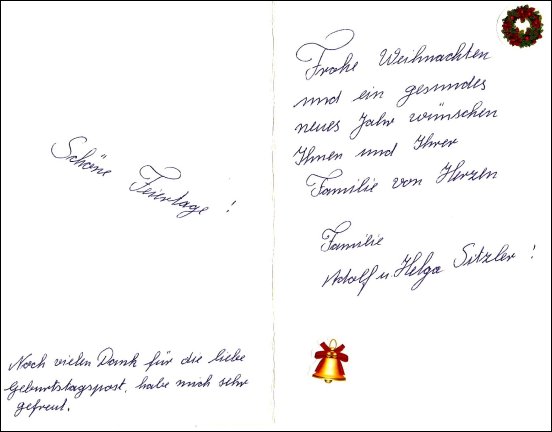 Schöne Feiertage!
Noch vielen Dank für die liebe
Geburtstagspost, habe mich sehr
gefreut.
Frohe Weihnachten
und ein gesundes
neues Jahr wünschen
Ihnen und Ihrer
Familie von Herzen
Familie
Adolf u. Helga Sitzler!